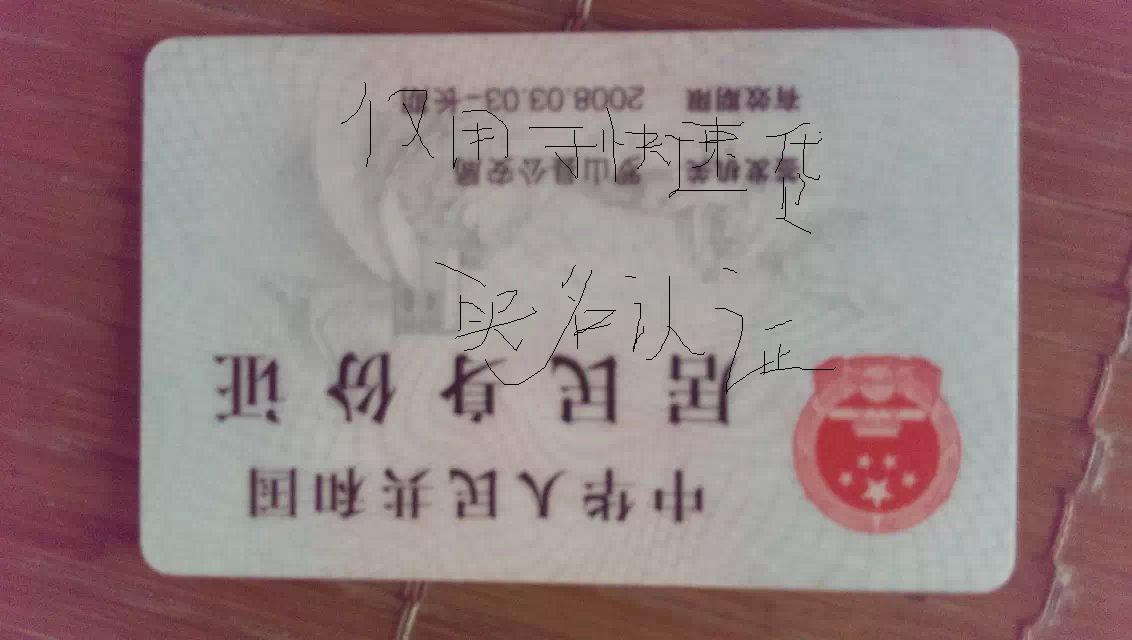 中华人民共和国
居民身份证
签发机关 罗山县公安局
有效期限 2008.03.03-长期
仅用于快速贷
实名认证